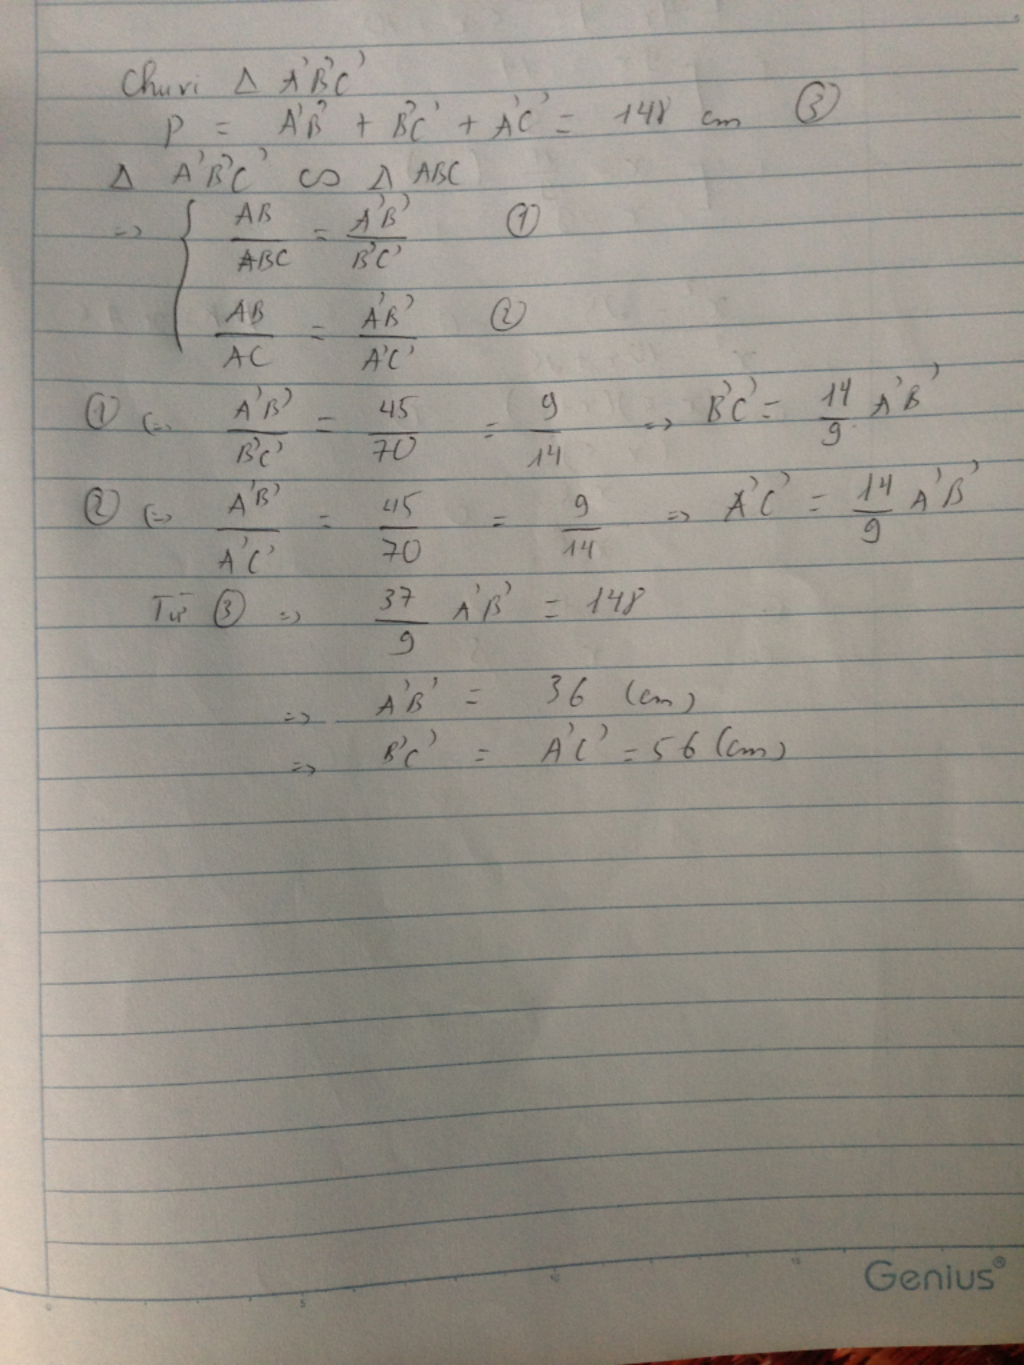 Chu vi Δ A'B'C'
P = A'B' + B'C' + A'C' = 148 cm ③
Δ A'B'C' ∽ Δ ABC
=> { AB/ABC = A'B'/B'C' ①
AB/AC = A'B'/A'C' ②
① (=> A'B'/B'C' = 45/70 = 9/14 => B'C' = 14/9 A'B'
② (=> A'B'/A'C' = 45/70 = 9/14 => A'C' = 14/9 A'B'
Từ ③ => 37/9 A'B' = 148
=> A'B' = 36 (cm)
=> B'C' = A'C' = 56 (cm)
Genius®